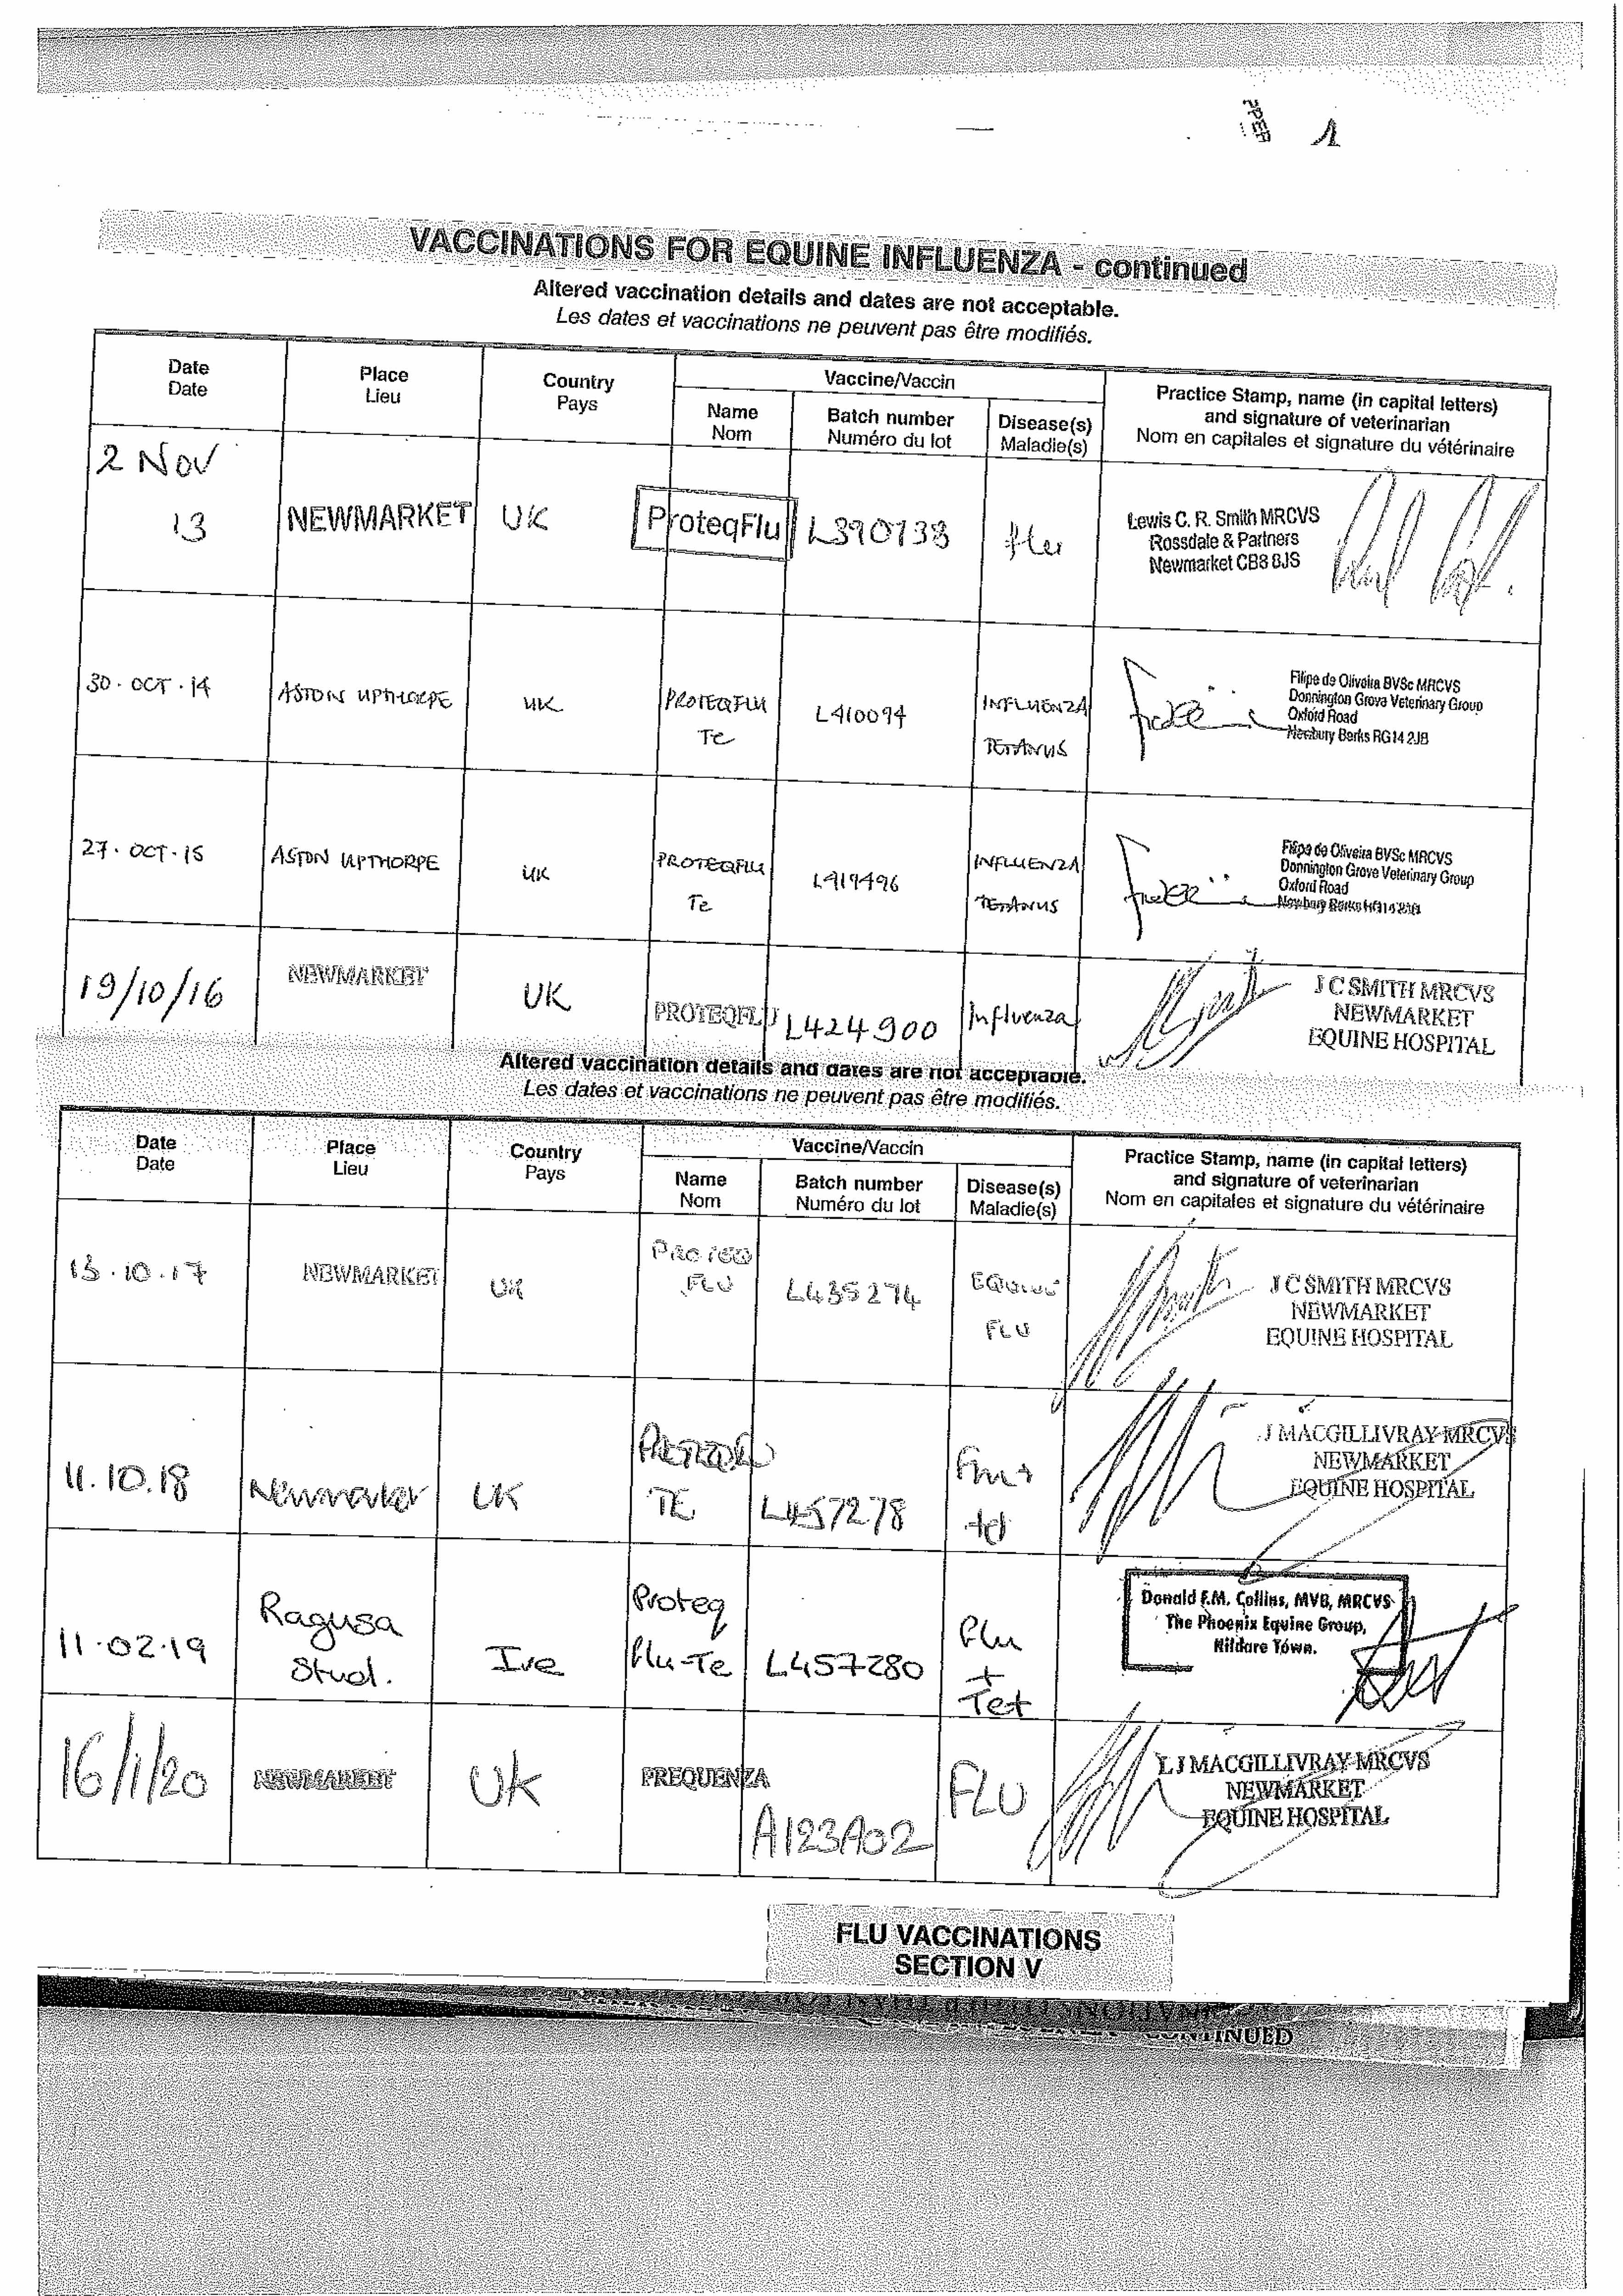 1
VACCINATIONS FOR EQUINE INFLUENZA - continued
Altered vaccination details and dates are not acceptable.
Les dates et vaccinations ne peuvent pas être modifiés.
Date Place Country Vaccine/Vaccin Practice Stamp, name (in capital letters)
Date Lieu Pays Name Batch number Disease(s) and signature of veterinarian
Nom Numéro du lot Maladie(s) Nom en capitales et signature du vétérinaire
2 NOV
13 NEWMARKET UK ProteqFlu L390738 flu Lewis C. R. Smith MRCVS
Rossdale & Partners
Newmarket CB8 8JS
30 · OCT · 14 ASTON UPTHORPE UK PROTEQFLU L410094 INFLUENZA Filipe de Oliveira BVSc MRCVS
Te TETANUS Donnington Grove Veterinary Group
Oxford Road
Newbury Berks RG14 2JB
27 · OCT · 15 ASTON UPTHORPE UK PROTEQFLU L419496 INFLUENZA Filipe de Oliveira BVSc MRCVS
Te TETANUS Donnington Grove Veterinary Group
Oxford Road
Newbury Berks RG14 2JB
19/10/16 NEWMARKET UK PROTEQFLU L424900 Influenza J C SMITH MRCVS
NEWMARKET
EQUINE HOSPITAL
Altered vaccination details and dates are not acceptable.
Les dates et vaccinations ne peuvent pas être modifiés.
Date Place Country Vaccine/Vaccin Practice Stamp, name (in capital letters)
Date Lieu Pays Name Batch number Disease(s) and signature of veterinarian
Nom Numéro du lot Maladie(s) Nom en capitales et signature du vétérinaire
13 · 10 · 17 NEWMARKET UK PROTEQ L435274 EQUINE J C SMITH MRCVS
FLU FLU NEWMARKET
EQUINE HOSPITAL
11.10.18 Newmarket UK PROTEQFLU L457278 J MACGILLIVRAY MRCVS
TE NEWMARKET
EQUINE HOSPITAL
11·02·19 Ragusa Ire Proteq L457280 Flu Donald F.M. Collins, MVB, MRCVS
Stud. Flu-Te + The Phoenix Equine Group,
Tet Kildare Town.
16/1/20 NEWMARKET UK PREQUENZA A123A02 FLU L J MACGILLIVRAY MRCVS
NEWMARKET
EQUINE HOSPITAL
FLU VACCINATIONS
SECTION V
CONTINUED